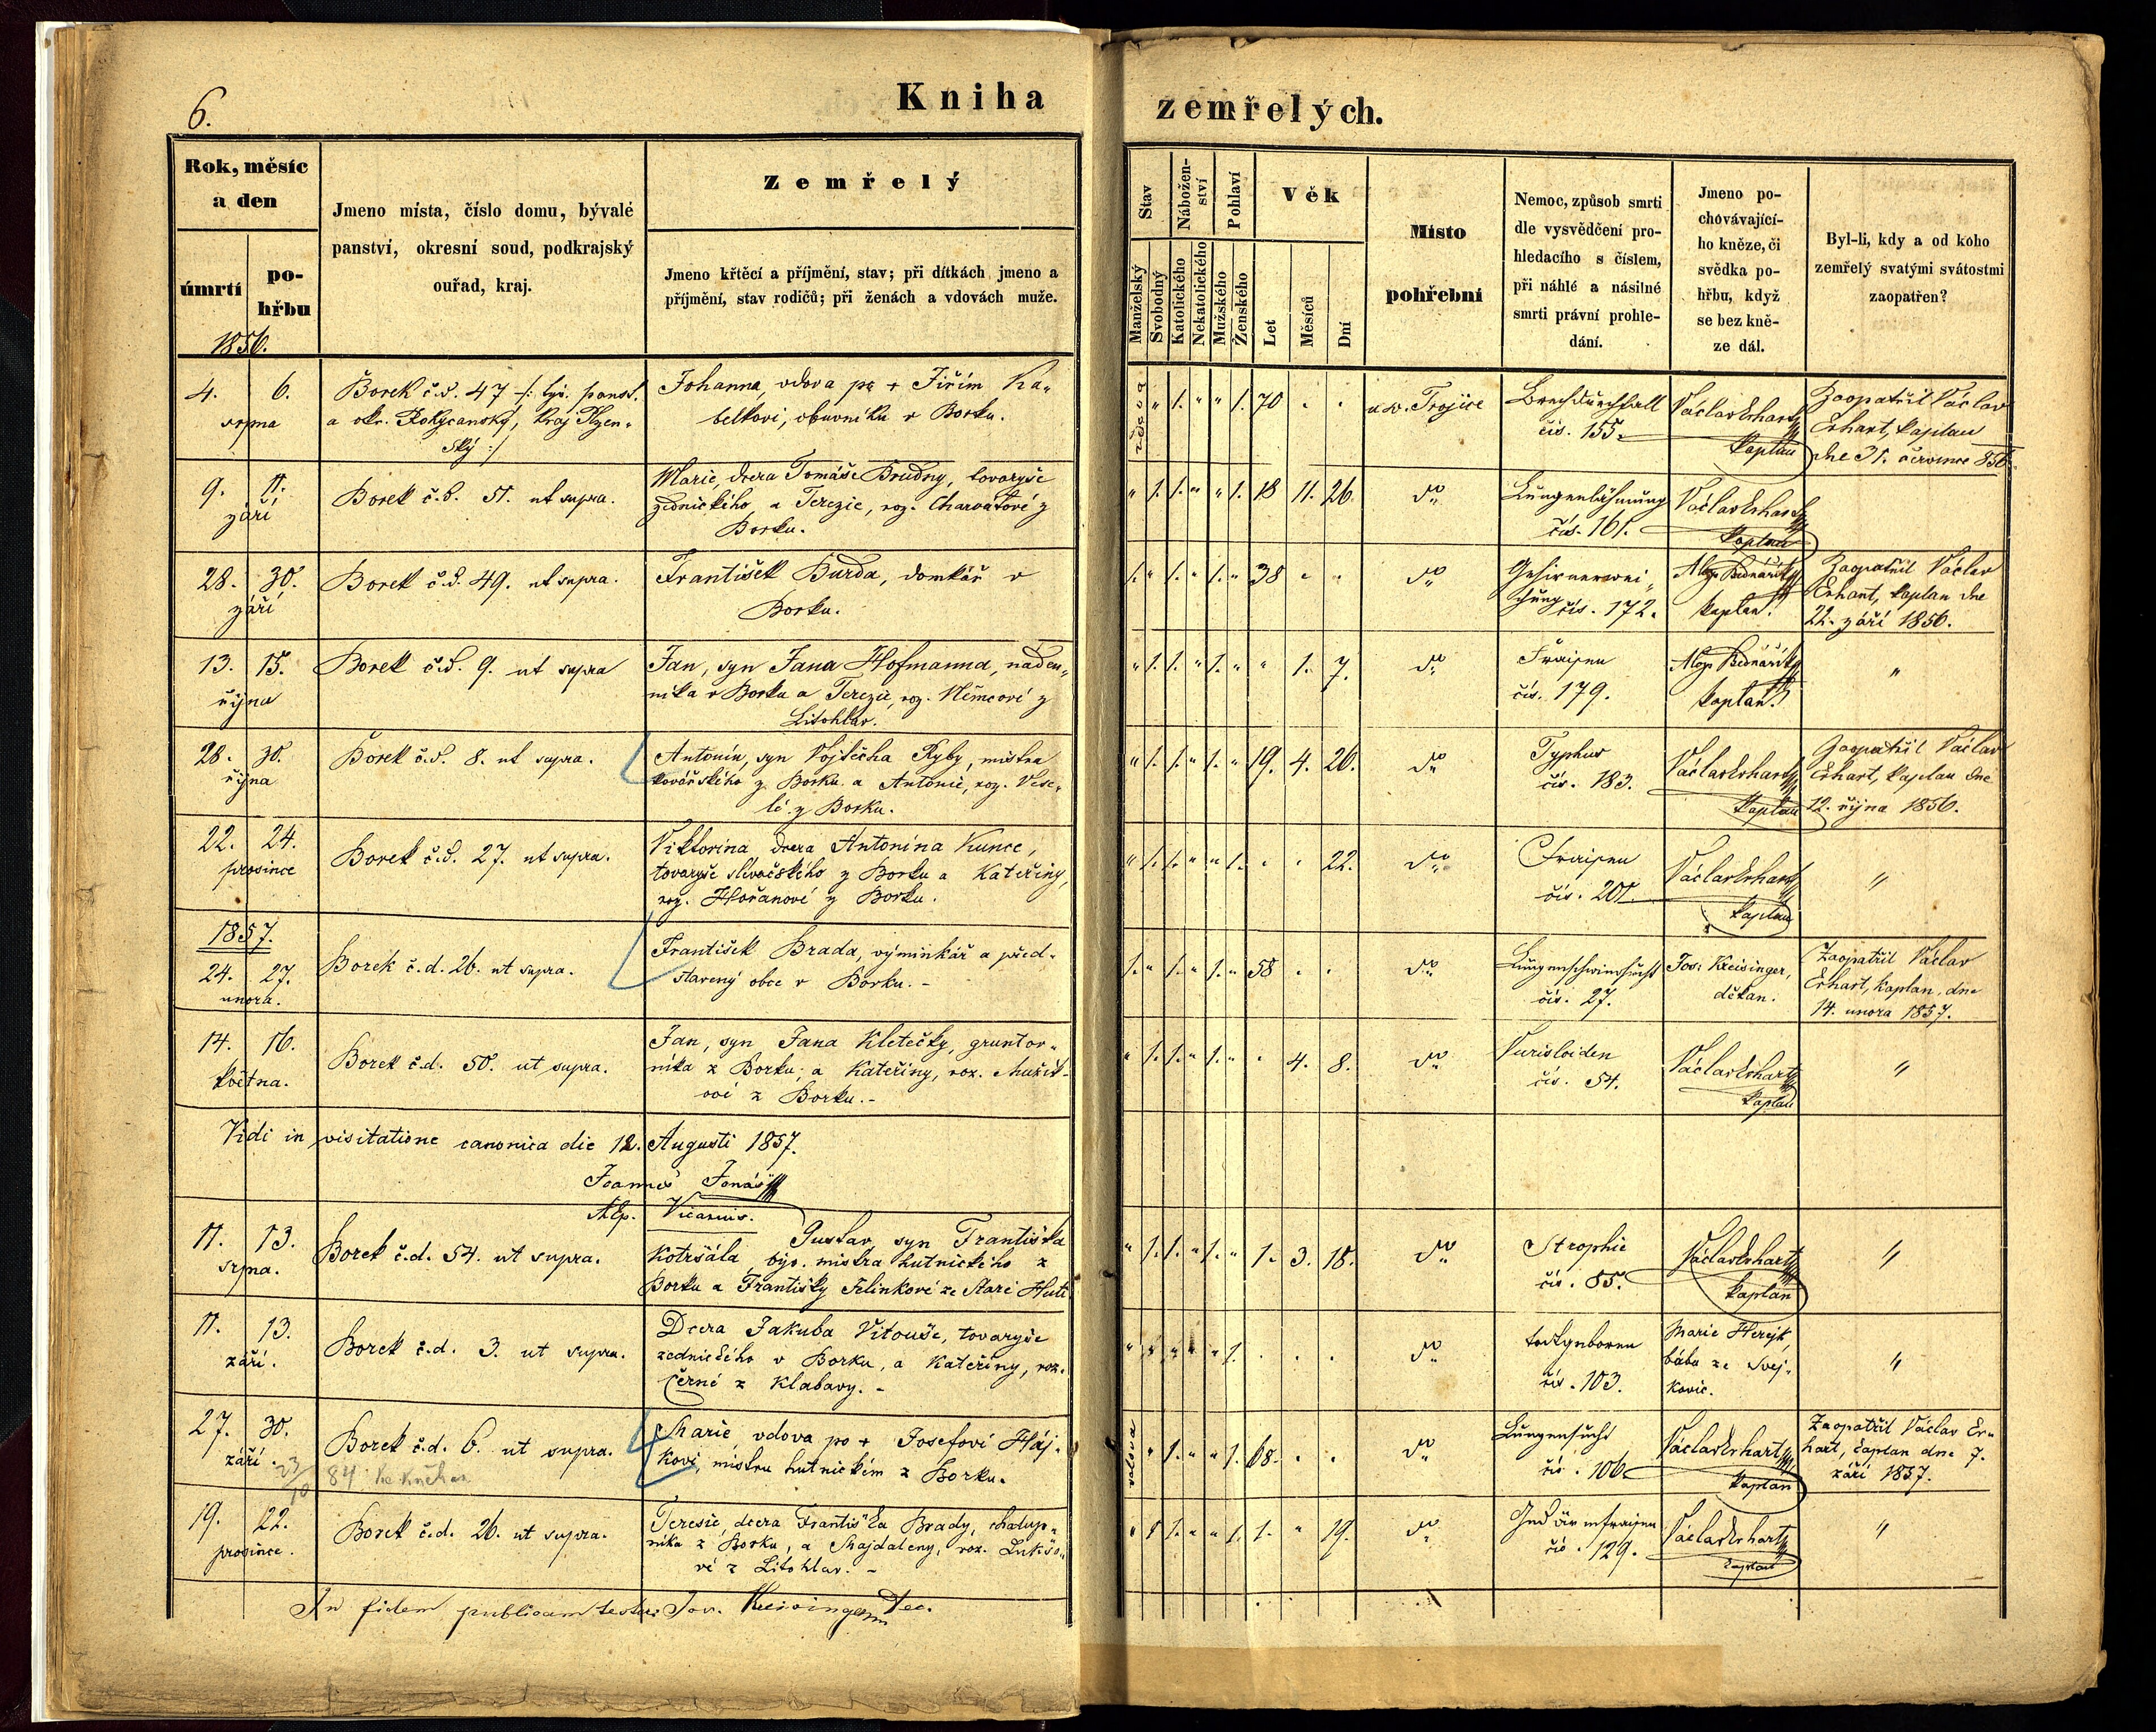 6.
Kniha zemřelých.
Rok, měsíc
a den
úmrtí
po-
hřbu
1856.
Jmeno místa, číslo domu, bývalé
panství, okresní soud, podkrajský
ouřad, kraj.
Zemřelý
Jmeno křtěcí a příjmění, stav; při dítkách jmeno a
příjmění, stav rodičů; při ženách a vdovách muže.
Stav
Manželský
Svobodný
Nábožen-
ství
Katolického
Nekatolického
Pohlaví
Mužského
Ženského
Věk
Let
Měsíců
Dní
Místo
pohřební
Nemoc, způsob smrti
dle vysvědčení pro-
hledacího s číslem,
při náhlé a násilné
smrti právní prohle-
dání.
Jmeno po-
chovávající-
ho kněze, či
svědka po-
hřbu, když
se bez kně-
ze dál.
Byl-li, kdy a od koho
zemřelý svatými svátostmi
zaopatřen?
4. 6.
srpna
Borek č.d. 47 /: býv. panst.
a okr. Rokycanský, kraj Plzen-
ský :/
Johanna, vdova po + Jiřím Ka-
belkovi, obuvníku v Borku.
vdova " 1. " " 1. 70 " "
u sv. Trojice
Brechdurchfall
čís. 155.
Václav Erhart
kaplan
Zaopatřil Václav
Erhart, kaplan
dne 31. července 856.
9. 11.
září
Borek č.d. 51. ut supra.
Marie, dcera Tomáše Brudny, tovaryše
zednického, a Terezie, roz. Charvátové z
Borku.
" 1. 1. " " 1. 18 11. 26.
do
Lungenlähmung
čís. 161.
Václav Erhart
kaplan
28. 30.
září
Borek č.d. 49. ut supra.
František Burda, domkář v
Borku.
1. " 1. " 1. " 38 " "
do
Gehirnerwei-
chung čís. 172.
Aloys Bednářík
kaplan.
Zaopatřil Václav
Erhart, kaplan dne
22. září 1856.
13. 15.
října
Borek č.d. 9. ut supra
Jan, syn Jana Hofmanna, náden-
níka v Borku a Terezie, roz. Němcové z
Litohlav.
" 1. 1. " 1. " " 1. 7.
do
Fraisen
čís. 179.
Aloys Bednářík
kaplan.
"
28. 30.
října
Borek č.d. 8. ut supra.
Antonín, syn Vojtěcha Ryby, mistra
kovářského z Borku a Antonie, roz. Vese-
lé z Borku.
" 1. 1. " 1. " 19. 4. 26.
do
Typhus
čís. 183.
Václav Erhart
kaplan
Zaopatřil Václav
Erhart, kaplan dne
12. října 1856.
22. 24.
prosince
Borek č.d. 27. ut supra.
Viktorina dcera Antonína Kunce,
tovaryše slivačského z Borku a Kateřiny,
roz. Hořanové z Borku.
" 1. 1. " " 1. " " 22.
do
Fraisen
čís. 201.
Václav Erhart
kaplan
"
1857.
24. 27.
unora.
Borek č.d. 26. ut supra.
František Brada, výminkář a před-
stavený obce v Borku. -
1. " 1. " 1. " 58 " "
do
Lungenschwindsucht
čís. 27.
Jos. Kreisinger,
děkan.
Zaopatřil Václav
Erhart, kaplan, dne
14. unora 1857.
14. 16.
května.
Borek č.d. 50. ut supra.
Jan, syn Jana Kletečky, gruntov-
níka z Borku, a Kateřiny, roz. Mužík-
ové z Borku. -
" 1. 1. " 1. " " 4. 8.
do
čís. 54.
Václav Erhart
kaplan
"
Vidi in visitatione canonica die 12. Augusti 1857.
Joannes Jonáš
Vicarius.
11. 13.
srpna.
Borek č.d. 54. ut supra.
Gustav, syn Františka
Kotršála, býv. mistra hutnického z
Borku a Františky Jelinkové ze Staré Huti
" 1. 1. " 1. " 1. 3. 18.
do
Strophie
čís. 85.
Václav Erhart
kaplan
"
11. 13.
září.
Borek č.d. 3. ut supra.
Dcera Jakuba Vitouše, tovaryše
zednického v Borku, a Kateřiny, roz.
Černé z Klabavy. -
" " " " " 1. . . .
do
todtgeboren
čís. 103.
Marie Herejk
bába ze Svej-
kovic.
"
27. 30.
září.
23/10 84
Borek č.d. 6. ut supra.
Marie vdova po + Josefovi Háj-
kovi, mistru hutnickém z Borku.
vdova " 1. " " 1. 68. . .
do
Lungensucht
čís. 106.
Václav Erhart
kaplan
Zaopatřil Václav Er-
hart, kaplan dne 7.
září 1857.
19. 22.
prosince.
Borek č.d. 26. ut supra.
Teresie, dcera Františka Brady, chalup-
níka z Borku, a Majdaleny, roz. Lukšo-
vé z Litohlav. -
" 1 1. " " 1. 1. " 19.
do
čís. 129.
Václav Erhart
kaplan
"
In fidem publicam testor Jos. Kreisinger Dec.